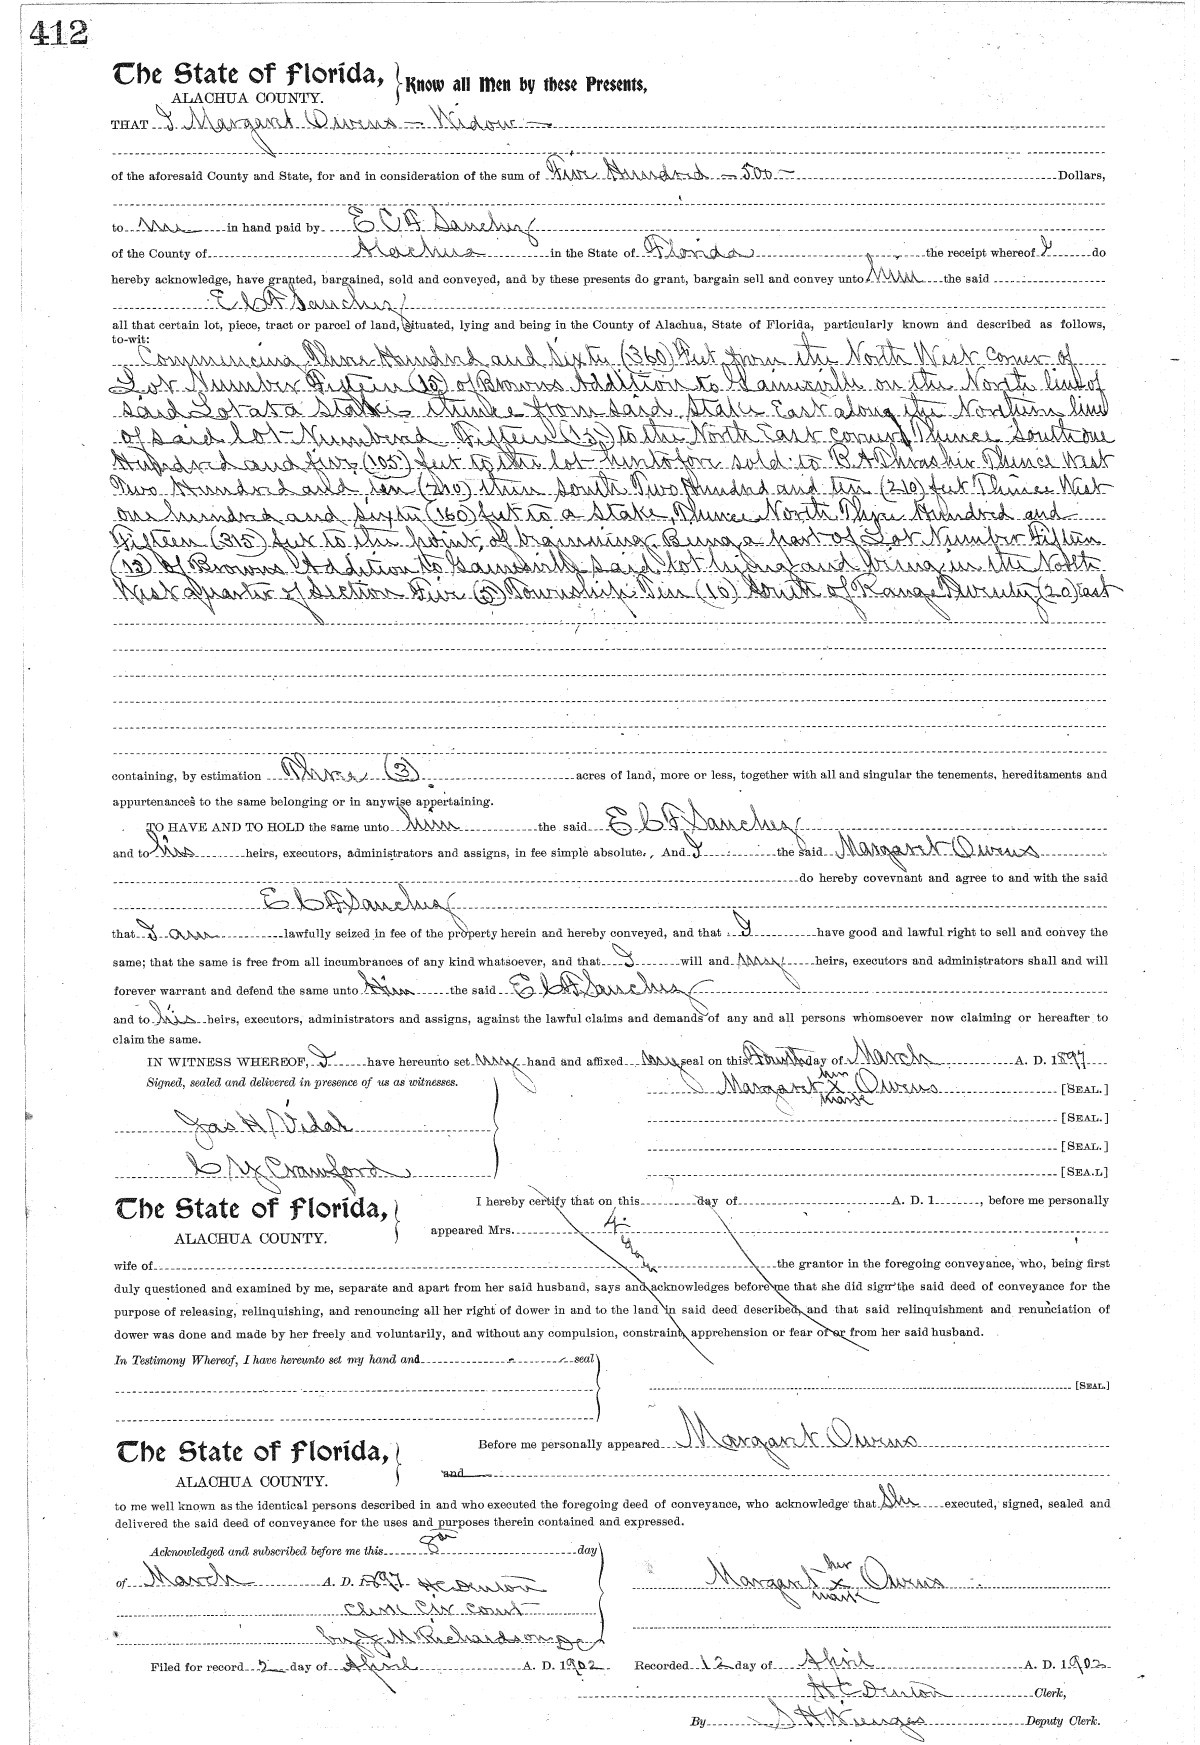 412
The State of Florida, Know all Men by these Presents,
ALACHUA COUNTY.
THAT I Margaret Owens — Widow —
of the aforesaid County and State, for and in consideration of the sum of Five Hundred — 500 — Dollars,
to me in hand paid by E C F Sanchez
of the County of Alachua in the State of Florida the receipt whereof I do
hereby acknowledge, have granted, bargained, sold and conveyed, and by these presents do grant, bargain sell and convey unto him the said
E C F Sanchez
all that certain lot, piece, tract or parcel of land, situated, lying and being in the County of Alachua, State of Florida, particularly known and described as follows,
to-wit:
Commencing Three Hundred and Sixty (360) Feet from the North West corner of
Lot Number Fifteen (15) of Browns Addition to Gainesville on the North line of
said Lot at a Stake thence from said Stake East along the Northern line
of said lot Numbered Fifteen (15) to the North East corner Thence South one
Hundred and five (105) feet to the lot heretofore sold to B A Thrasher Thence West
Two Hundred and ten (210) then south Two Hundred and ten (210) feet Thence West
one hundred and Sixty (160) feet to a Stake, Thence North Three Hundred and
Fifteen (315) feet to the point of beginning. Being a part of Lot Number Fifteen
(15) of Browns Addition to Gainesville said lot lying and being in the North
West quarter of Section Five (5) Township Ten (10) South of Range Twenty (20) East
containing, by estimation Three (3) acres of land, more or less, together with all and singular the tenements, hereditaments and
appurtenances to the same belonging or in anywise appertaining.
TO HAVE AND TO HOLD the same unto him the said E C F Sanchez
and to his heirs, executors, administrators and assigns, in fee simple absolute. And I the said Margaret Owens
do hereby covevnant and agree to and with the said
E C F Sanchez
that I am lawfully seized in fee of the property herein and hereby conveyed, and that I have good and lawful right to sell and convey the
same; that the same is free from all incumbrances of any kind whatsoever, and that I will and my heirs, executors and administrators shall and will
forever warrant and defend the same unto Him the said E C F Sanchez
and to his heirs, executors, administrators and assigns, against the lawful claims and demands of any and all persons whomsoever now claiming or hereafter to
claim the same.
IN WITNESS WHEREOF, I have hereunto set my hand and affixed my seal on this Fourth day of March A. D. 1897
Signed, sealed and delivered in presence of us as witnesses.
her
Margaret x Owens [SEAL.]
mark
Jas H Vidal [SEAL.]
[SEAL.]
C Y Crawford [SEA.L]
The State of Florida, I hereby certify that on this day of A. D. 1 , before me personally
ALACHUA COUNTY. appeared Mrs.
wife of the grantor in the foregoing conveyance, who, being first
duly questioned and examined by me, separate and apart from her said husband, says and acknowledges before me that she did sign the said deed of conveyance for the
purpose of releasing, relinquishing, and renouncing all her right of dower in and to the land in said deed described, and that said relinquishment and renunciation of
dower was done and made by her freely and voluntarily, and without any compulsion, constraint, apprehension or fear of or from her said husband.
In Testimony Whereof, I have hereunto set my hand and seal
[SEAL.]
The State of Florida, Before me personally appeared Margaret Owens
ALACHUA COUNTY. and
to me well known as the identical persons described in and who executed the foregoing deed of conveyance, who acknowledge that She executed, signed, sealed and
delivered the said deed of conveyance for the uses and purposes therein contained and expressed.
Acknowledged and subscribed before me this 8th day
of March A. D. 1897 H C Denton
Clerk Cir Court
by J M Richardson DC
her
Margaret x Owens
mark
Filed for record 2 day of April A. D. 1902 Recorded 12 day of April A. D. 1902
H C Denton Clerk,
By S H Wienges Deputy Clerk.